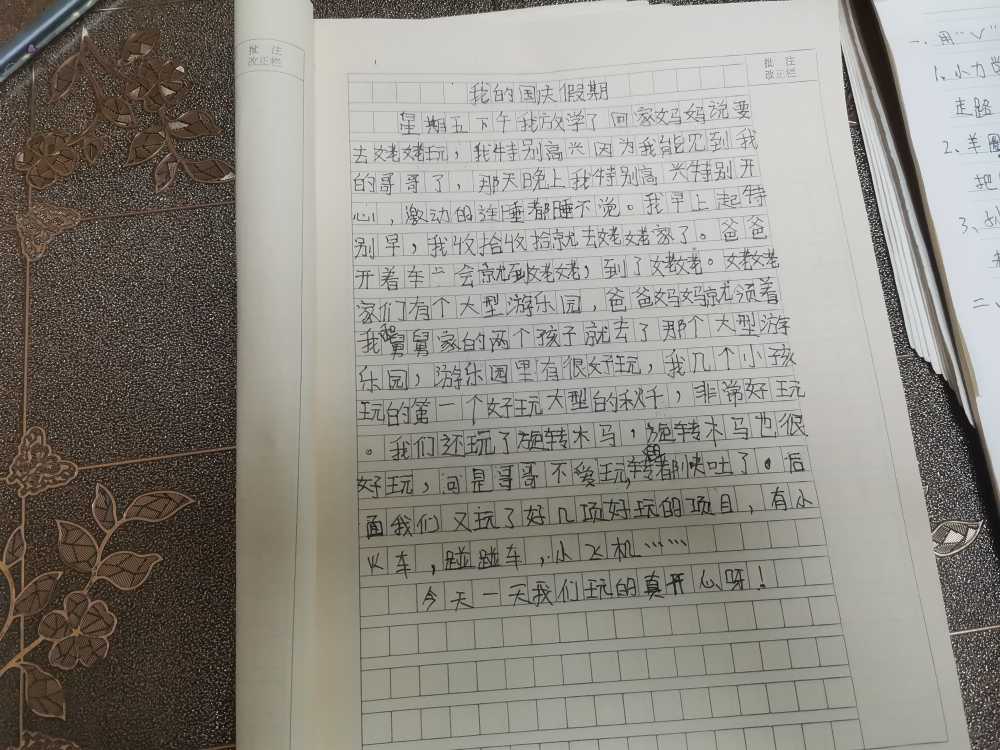 批 注
改正栏
批 注
改正栏
我的国庆假期
星期五下午我放学了回家妈妈说要
去姥姥玩，我特别高兴因为我能见到我
的哥哥了，那天晚上我特别高兴特别开
心，激动的连睡都睡不觉。我早上起特
别早，我收拾收拾就去姥姥家了。爸爸
开着车一会就到姥姥，到了姥姥。姥姥
家们有个大型游乐园，爸爸妈妈就领着
我和舅舅家的两个孩子就去了那个大型游
乐园，游乐园里有很好玩，我几个小孩
玩的第一个好玩大型的秋千，非常好玩
。我们还玩了旋转木马，旋转木马也很
好玩，可是哥哥不爱玩，转都快吐了。后
面我们又玩了好几项好玩的项目，有小
火车，碰碰车，小飞机……
今天一天我们玩的真开心呀！
一、用“√”
1、小力
走路
2、羊圈
把
3、
二、